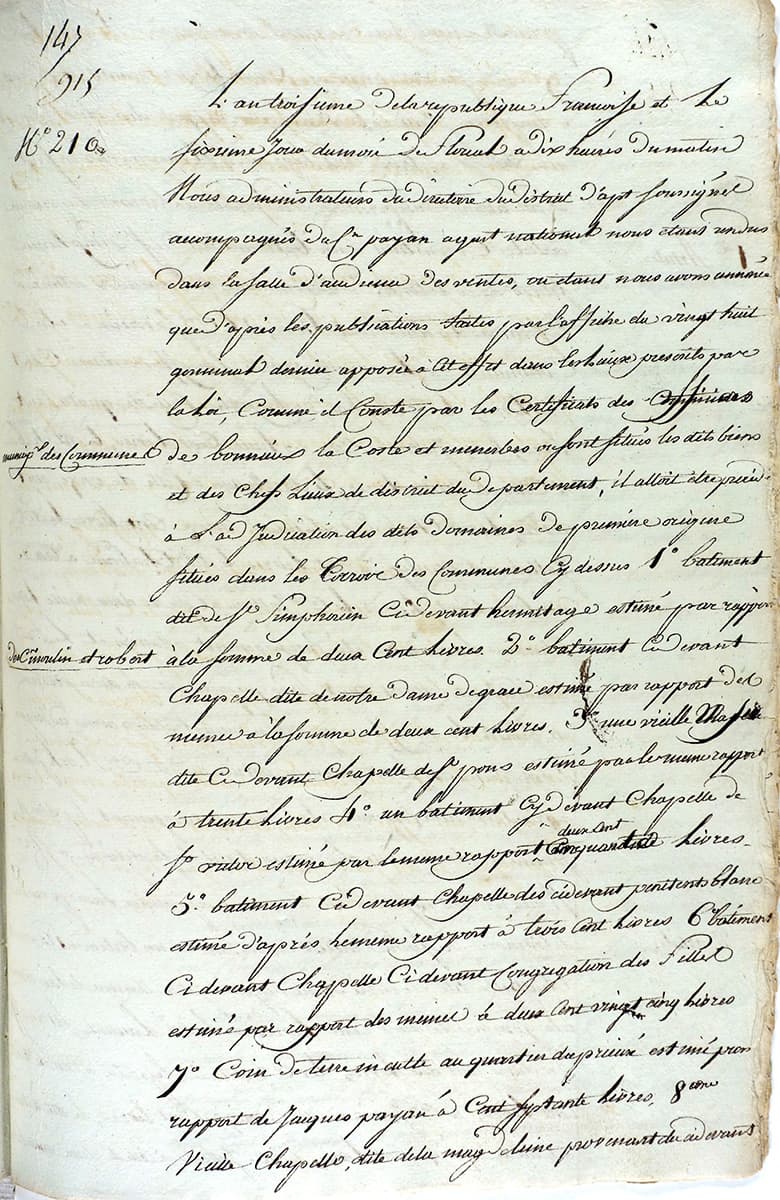 147
915
N° 210
L'an troisieme de la republique Francoise et Le
sixieme Jour du mois de Floreal a dix heures du matin
Nous administrateurs du directoire du district d'apt soussignes
accompagnés du Cn payan agent national nous etans rendus
dans la salle d'audience des ventes, ou etant nous avons annoncé
que d'après les publications faites par l'affiche du vingt huit
germinal dernier apposée à cet effet dans les lieux prescrits par
la Loi, Comme il Conste par les Certificats des
municip.és des Communes
de bonnieux la Coste et menerbes ou sont situés les dits biens
et des Chefs Lieux de district du departement, il alloit être procédé
à L'adjudication des dits domaines de première origine
situés dans les Terroir des Communes Cy dessus 1° batiment
dit de St Simphorien Cidevant hermitage estimé par rapport
des Cns moulin et robert
à la somme de deux Cent livres. 2° batiment Cidevant
Chapelle dite de notre dame de grace estimé par rapport des
memes à la somme de deux cent livres. 3° une vieille Masure
dite Cidevant Chapelle de St pons estimé par le meme rapport
à trente livres 4° un batiment Cy devant Chapelle de
deux Cent
St estimé par le meme rapport à Cinquante livres
5° batiment Cidevant Chapelle des cidevant penitent blanc
estimé d'après le meme rapport à trois Cent livres 6° batiment
Cidevant Chapelle Cidevant Congregation des Filles
estimé par rapport des memes à deux Cent vingt cinq livres
7° Coin de terre inculte au quartier du prieuré estimé par
rapport de Jacques payan à Cent septante livres, 8eme
Vieille Chapelle, dite de la magdeleine provenant du cidevant